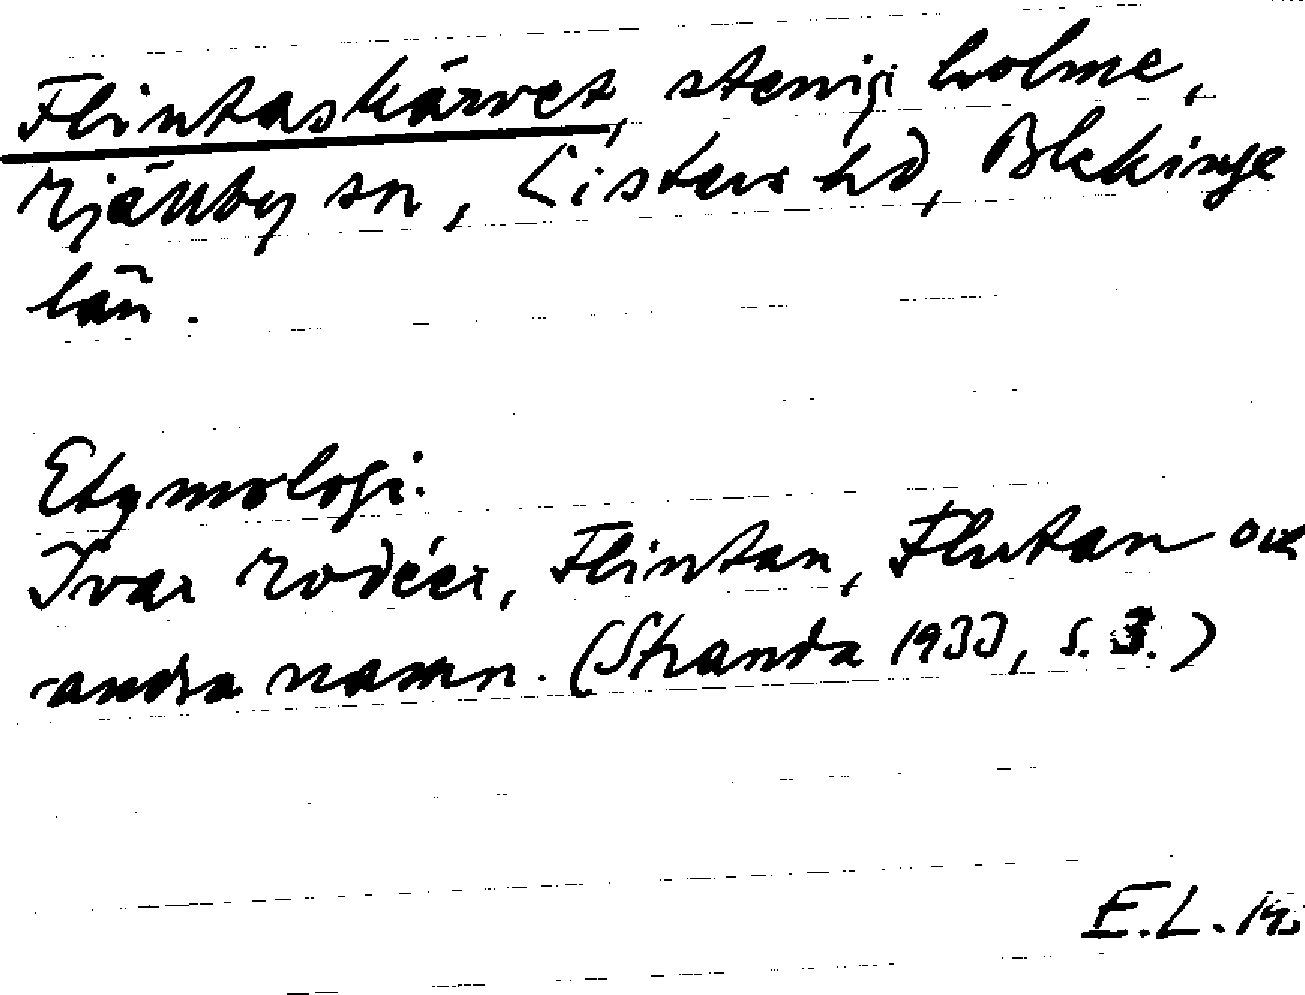 Flintaskärvet, stenig holme,
Mjällby sn, Listers hd, Blekinge
län.
Etymologi:
Ivar Modéer, Flintan, Flutan och
andra namn. (Stranda 1933, s. 3.)
E.L. 19